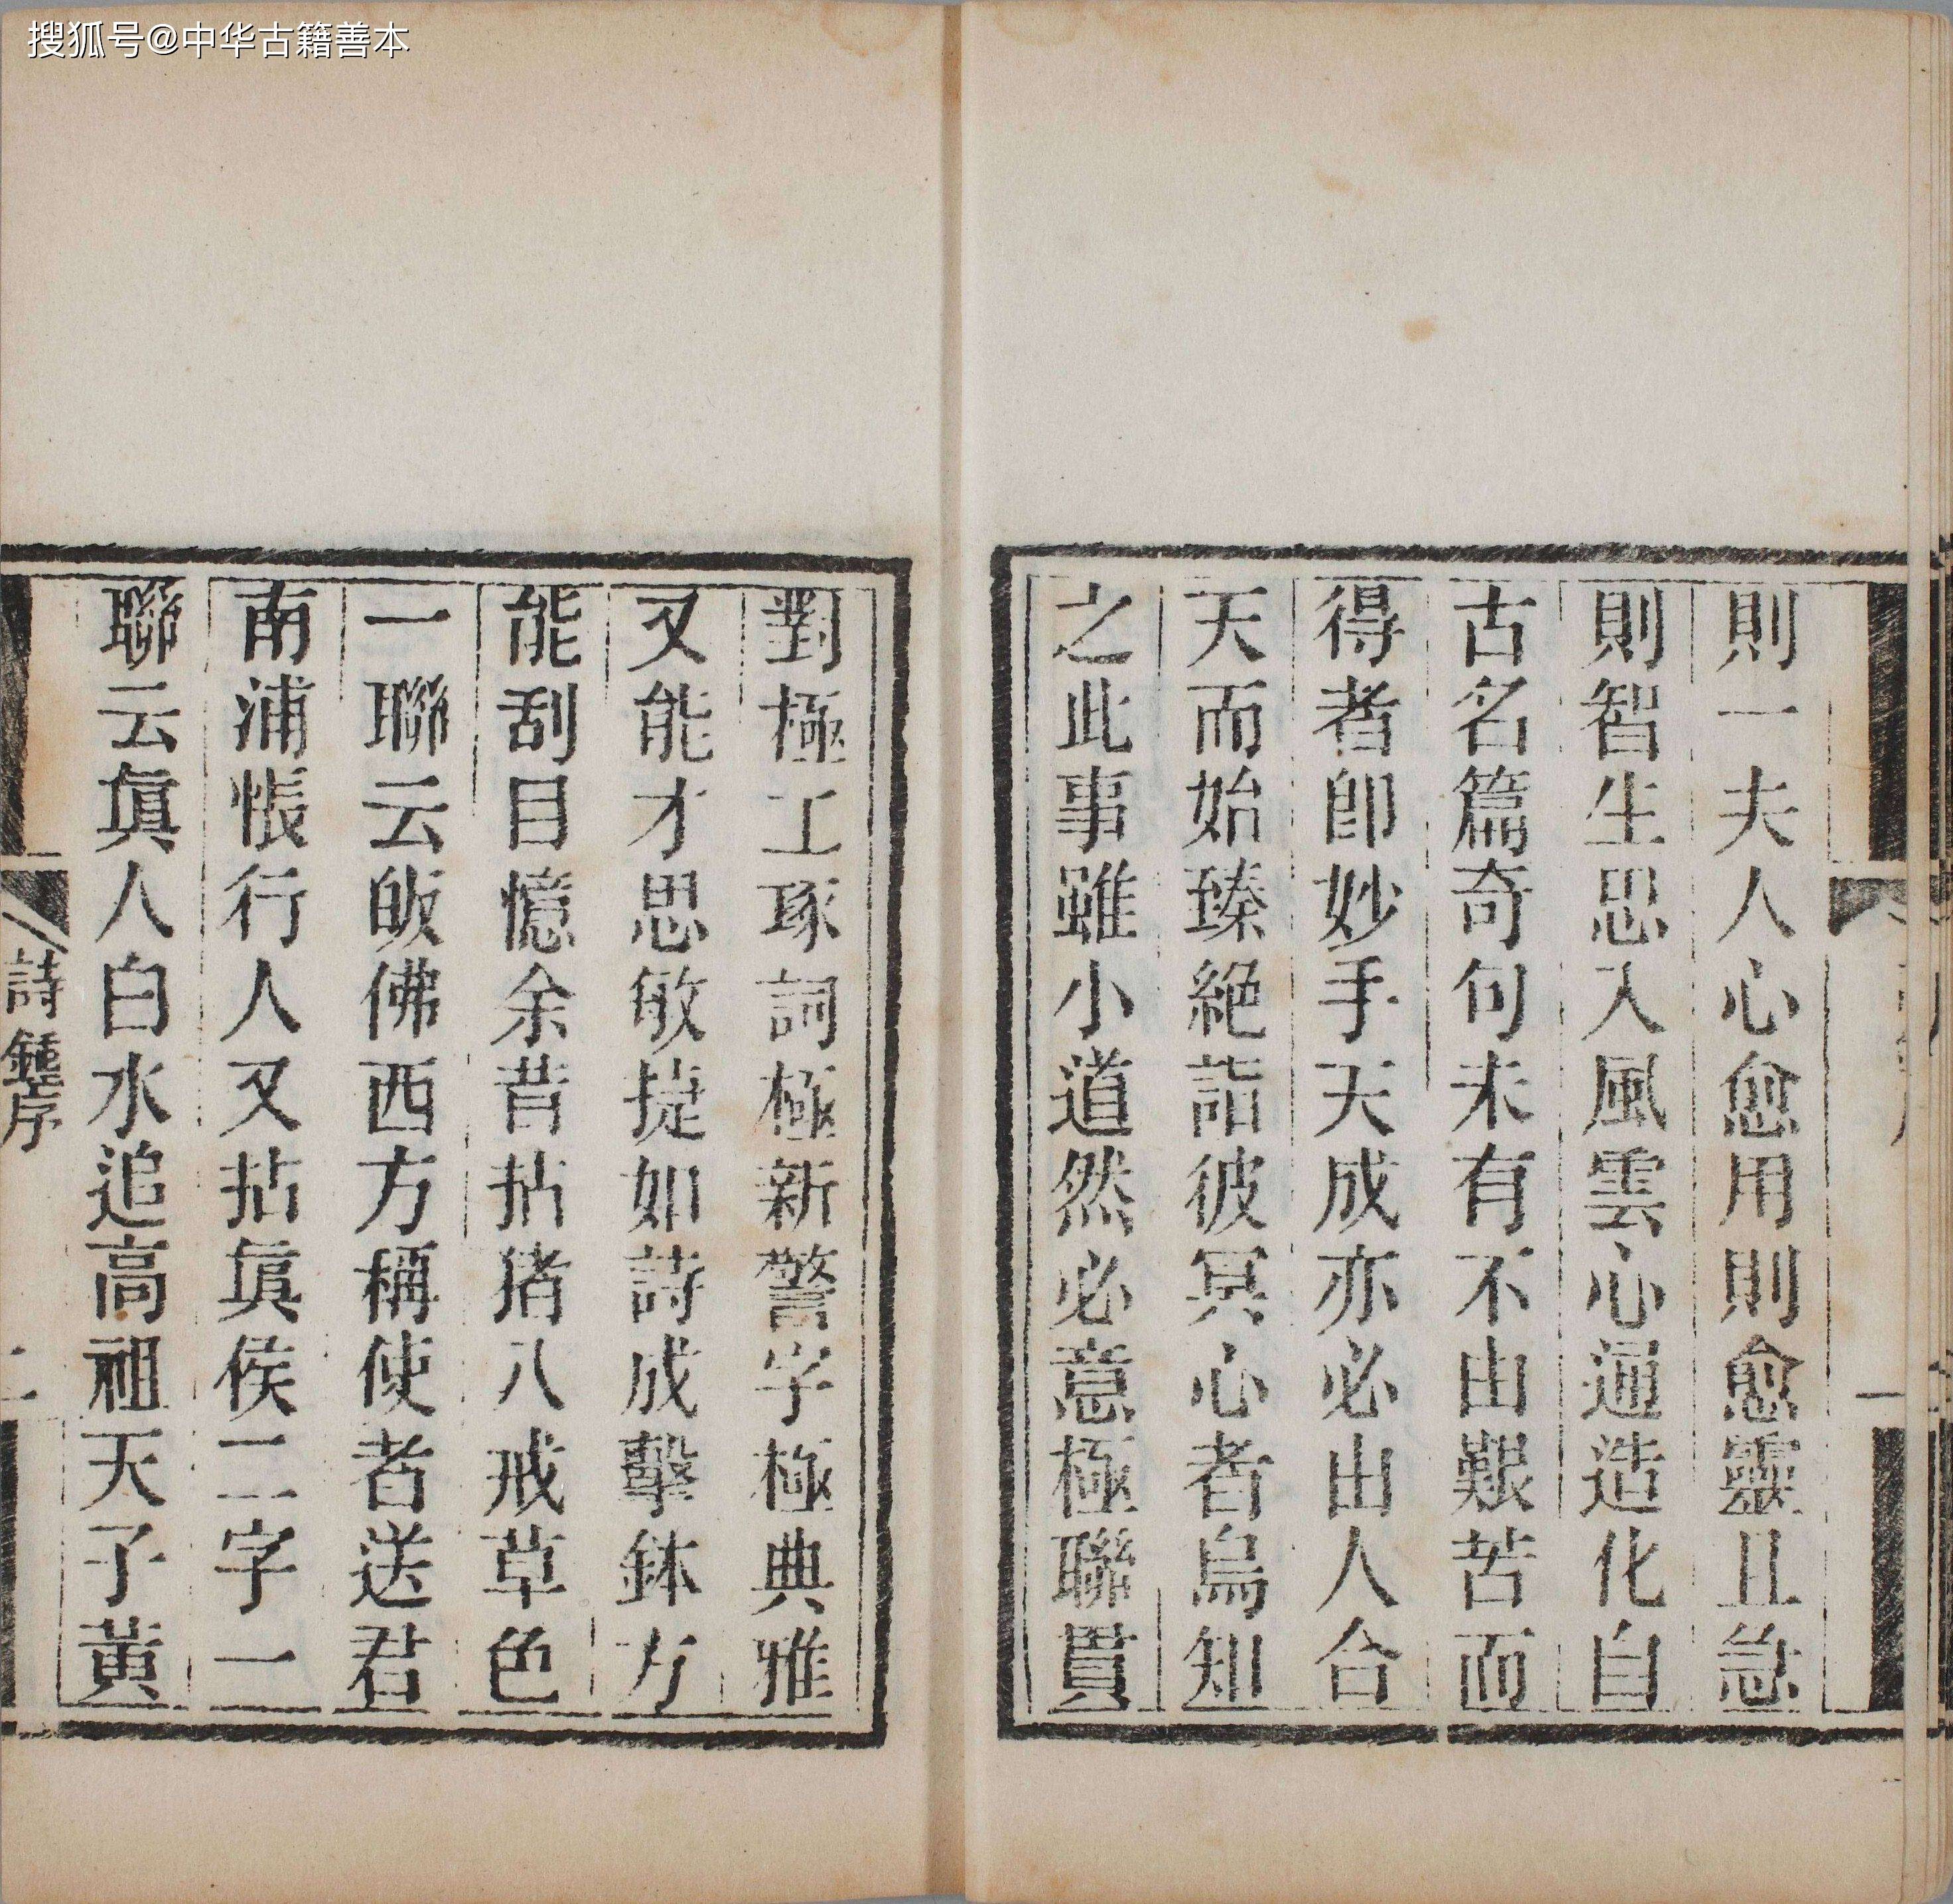 搜狐号@中华古籍善本
則一夫人心愈用則愈靈且急
則智生思入風雲心通造化自
古名篇奇句未有不由艱苦而
得者卽妙手天成亦必由人合
天而始臻絕詣彼冥心者烏知
之此事雖小道然必意極聯貫
對極工琢詞極新警字極典雅
又能才思敏捷如詩成擊鉢方
能刮目憶余昔拈猪八戒草色
一聯云皈佛西方稱使者送君
南浦悵行人又拈眞侯二字一
聯云眞人白水追高祖天子黃
詩鐘序
二